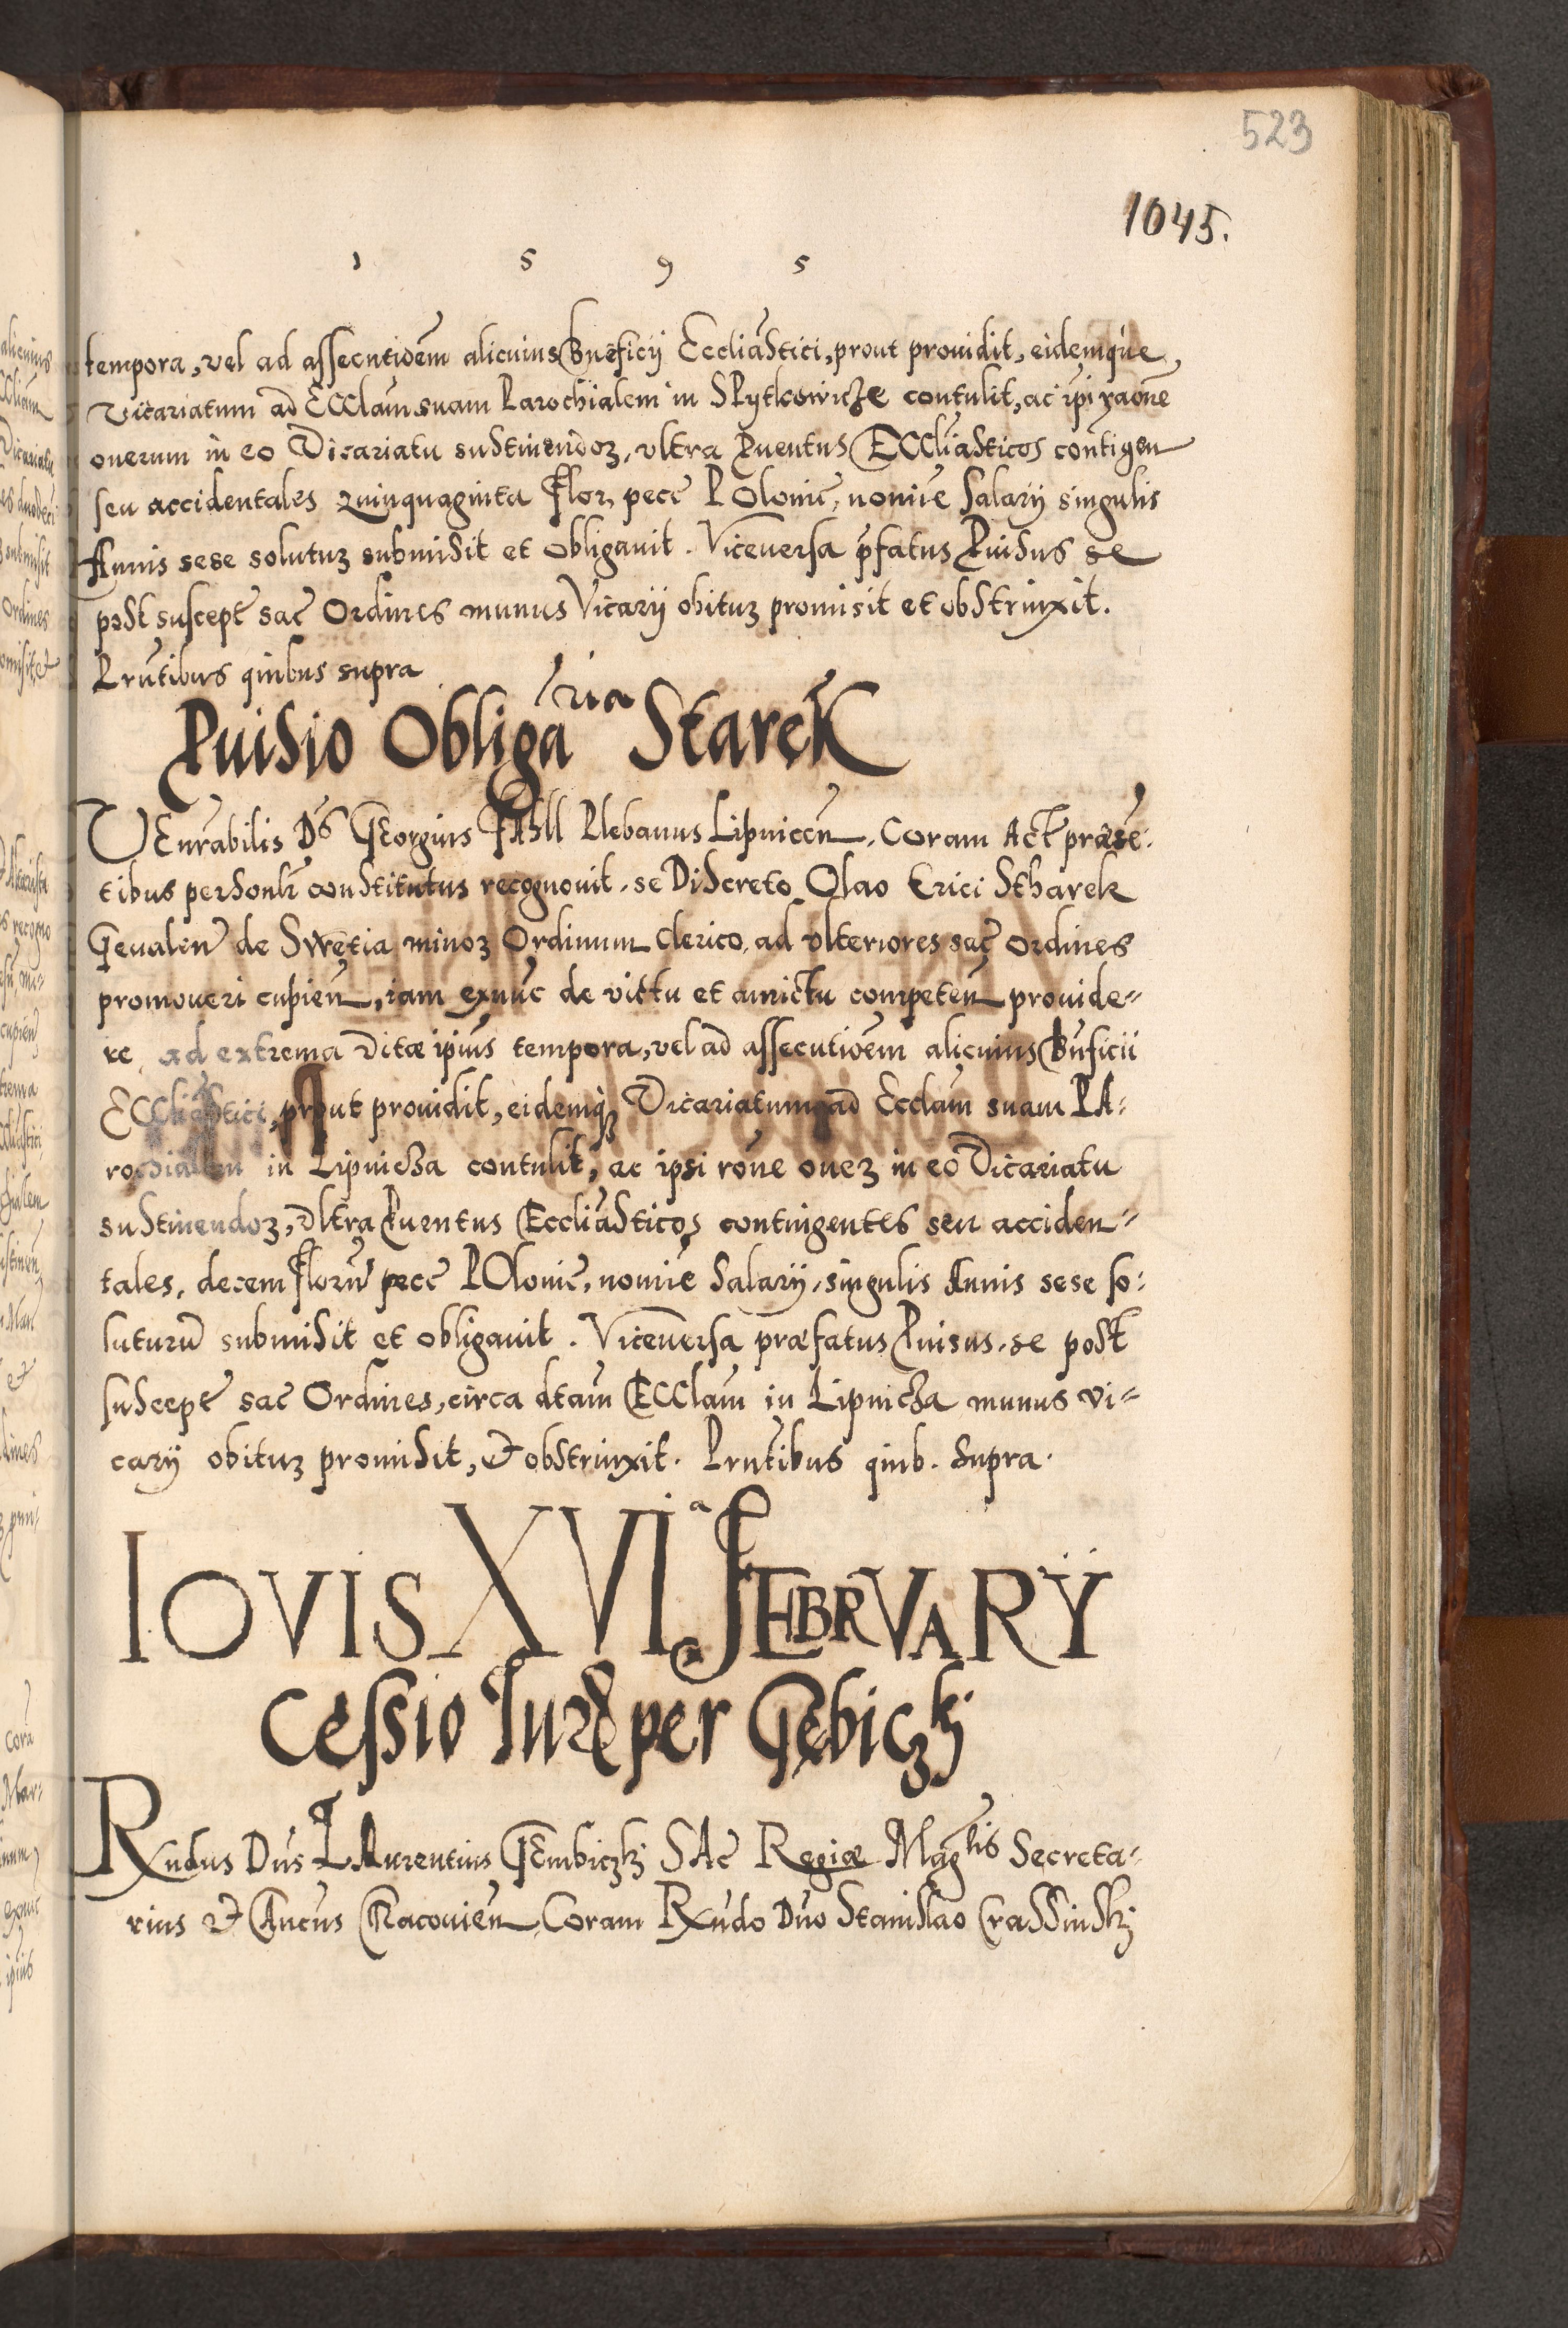 523
1045.
1 5 9 5
tempora, vel ad assecutiōem alicuius Bnēficij Eccliāstici, prout prouidit, eidemque,
Vicariatum ad ECClam suam Parochialem in SPytkowicze contulit, ac ipi raōne
onerum in eo Vicariatu sustinendoꝝ, vltra Puentus ECCliāsticos contigen
seu accidentales Quinquaginta Flor, pecc POlonic, nomīe Salarij singulis
Annis sese solutuꝝ submisit et obligauit. Viceuersa pfatus Puisus se
post suscept sac Ordines munus Vicarij obituꝝ promisit et obstrinxit.
Prntibus quibus supra
Puisio Obligaria Starek
VEnrabilis Ds GEorgius FAbll Plebanus Lipnicen, Coram Act præsē:
tibus personlr constitutus recognouit, se Discreto Olao Erici Stharek
Geualen de Swetia minoꝝ Ordinum Clerico, ad vlteriores sac ordines
promoueri cupien, iam exnūc de victu et amictu competen prouide=
re ad extrema vitæ ipius tempora, vel ad assecutiōem alicuius Bnficii
ECCliastici, prout prouidit, eidemq̨ Vicariatum ad Ecclam suam PA:
rochialem in Lipnicza contulit, ac ipsi rōne oneꝝ in eo Vicariatu
sustinendoꝝ, vltra Puentus Eccliāsticos contingentes seu acciden=
tales, decem florn̄ pecc POlonic, nomīe Salarij, singulis Annis sese so:
luturū submisit et obligauit. Viceuersa præfatus Puisus, se post
suscept sac Ordines, circa dtam ECClam in Lipnicza munus vi=
carij obituꝝ promisit, & obstrinxit. Prntibus quib. Supra.
IOVIS XVIa FEBRVARŸ
Cessio Juris per Gębiczkj
Rxndus Dns LAurentius GEmbiczkj SAc Regiæ Magtis Secreta=
rius & Cancus Cracouien, Coram Rxndo Dno Stanislao Crassinskj